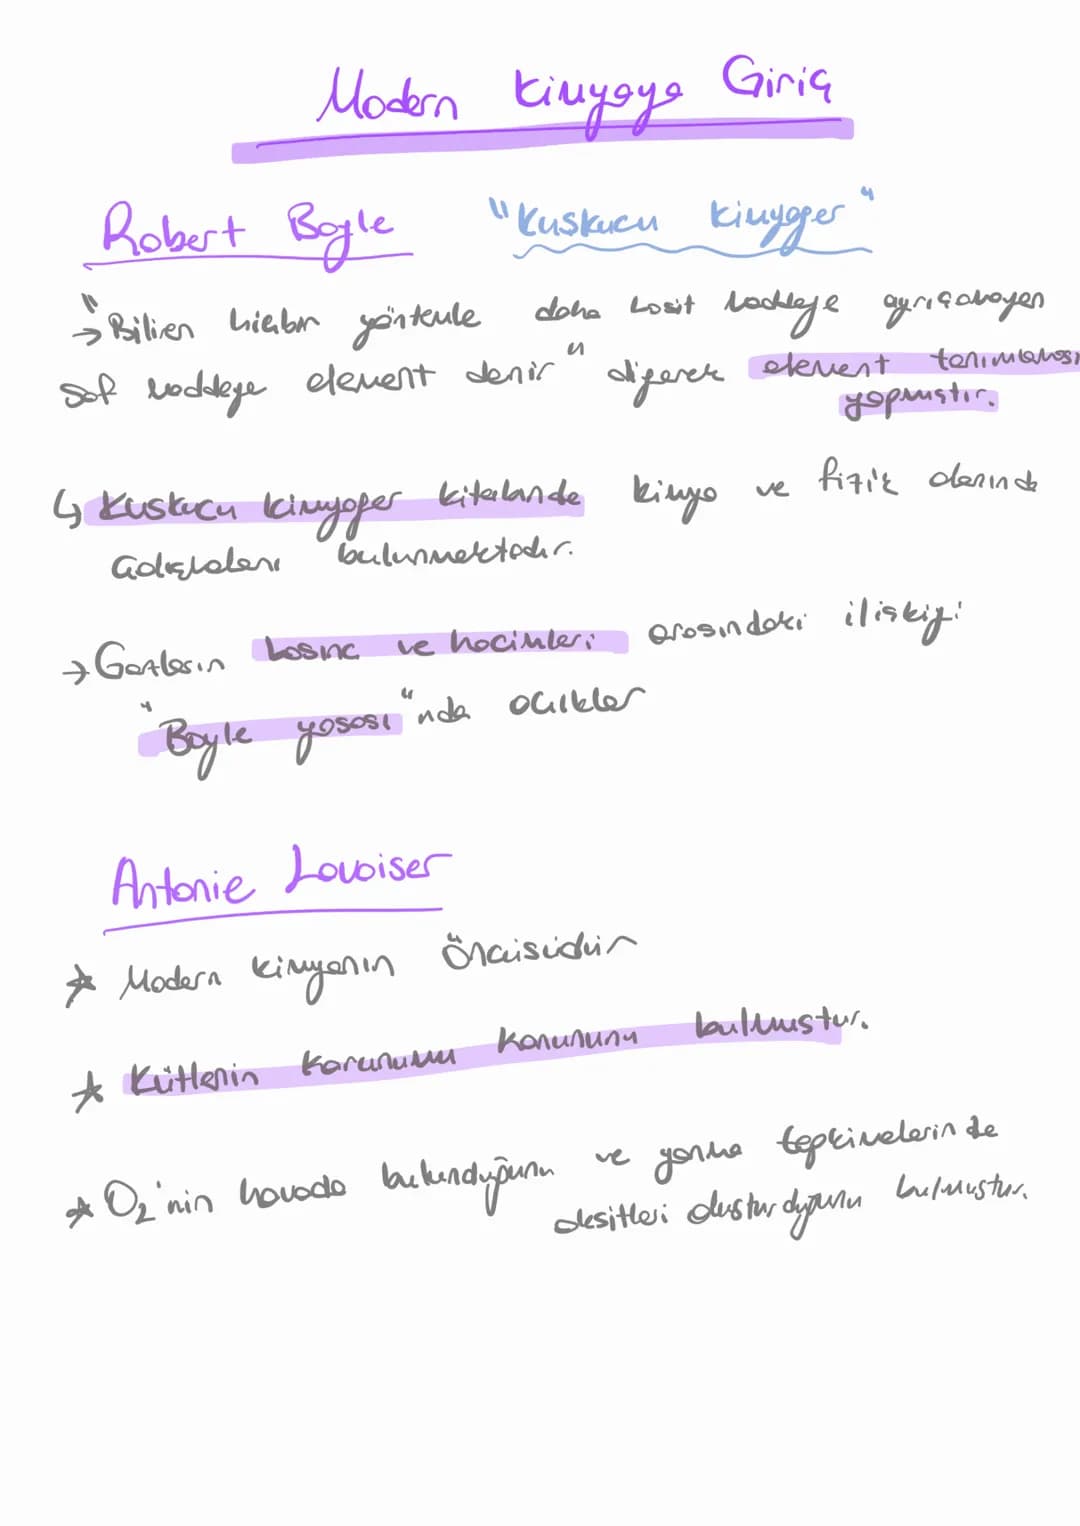 Modern Kimyaya Giriş
Robert Boyle "Kuşkucu kimyager"
→ "Bilinen hiçbir yöntemle daha basit maddeye ayrışamayan
saf maddeye element denir" diyerek element tanımlaması
yapmıştır.
↳ Kuşkucu kimyager kitabında kimya ve fizik alanında
çalışmaları bulunmaktadır.
→ Gazların basınç ve hacimleri arasındaki ilişkiyi
"Boyle yasası"nda açıklar
Antonie Lavoiser
☆ Modern kimyanın öncüsüdür
☆ Kütlenin korunumu kanununu bulmuştur.
☆ O₂'nin havada bulunduğunu ve yanma tepkimelerinde
oksitleri oluşturduğunu bulmuştur.